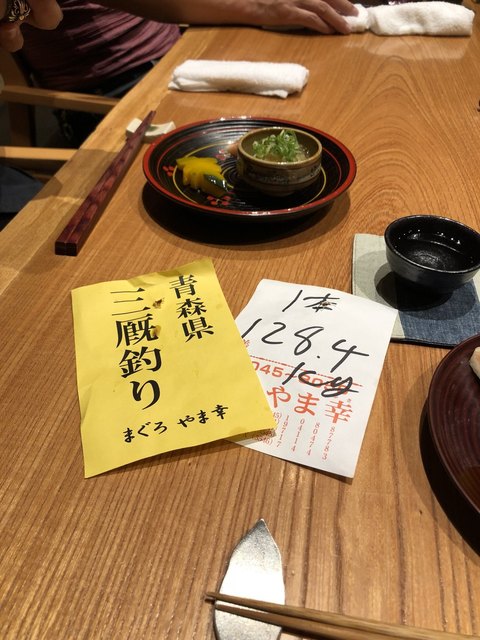 青森県
三厩釣り
まぐろ やま幸
1本
128.4
kg
やま幸